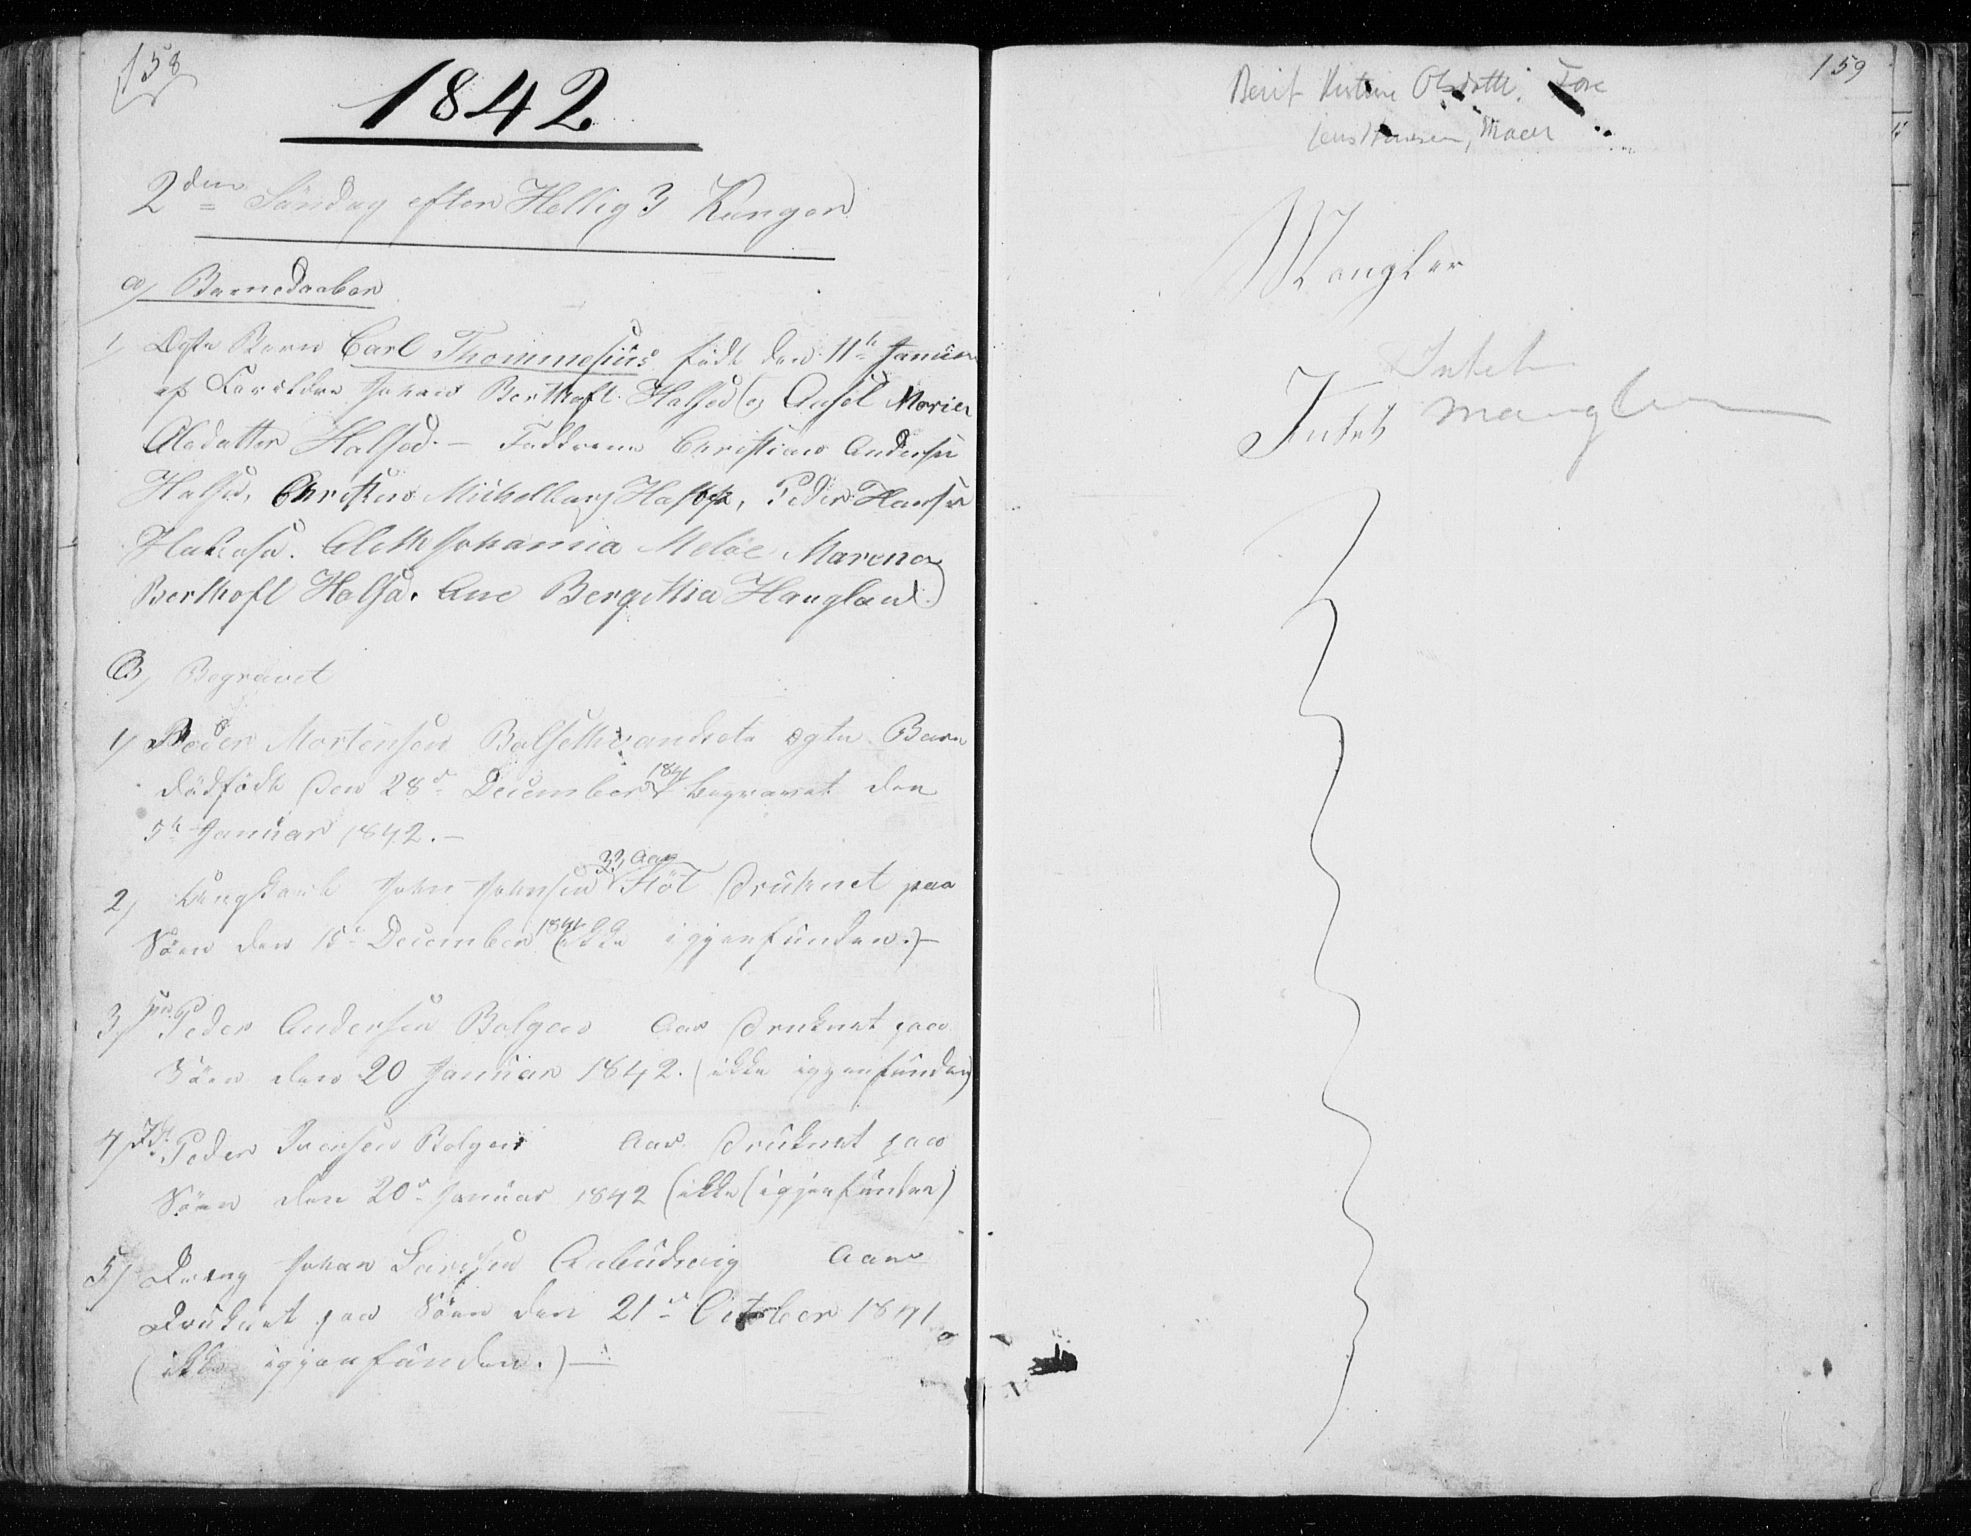 158
1842
2den Søndag efter Hellig 3 Konger
a/ Barnedaaben
1/ Ægte Barn Carl Thommesius født den 11h Januar
af Forældre Johan Berthoft Halsa og Ansel Maria
Olsdatter Halsa. – Fadderne Christian Andersen
Halsa, Christen Michelborg Peder Hansen
Johannia Meløe Marena
Berthoft Halsa. Ane Bergithia Haugland
B/ Begravet
1/ Peder Mortensen ægte Barn
dødfødt den 28d December 1841 begravet den
5h Januar 1842. –
2/ Ungkarl John Johnsen 33 Aar Støt druknet paa
Søen den 15d December 1841 (ikke igjenfunden.) –
3/ Peder Andersen Bolgen Aar druknet paa
Søen den 20 Januar 1842. (ikke igjenfunden)
4/ Peder Iversen Bolgen Aar druknet paa
Søen den 20d Januar 1842 (ikke igjenfunden)
5/ Dreng Johan Larsen Aar
Druknet paa Søen den 21d October 1841
(ikke igjenfunden.) –
159
Berit Kirstine Olsdattr. Fore
Jens Hansen,
Mangler
Intet
Intet mangler